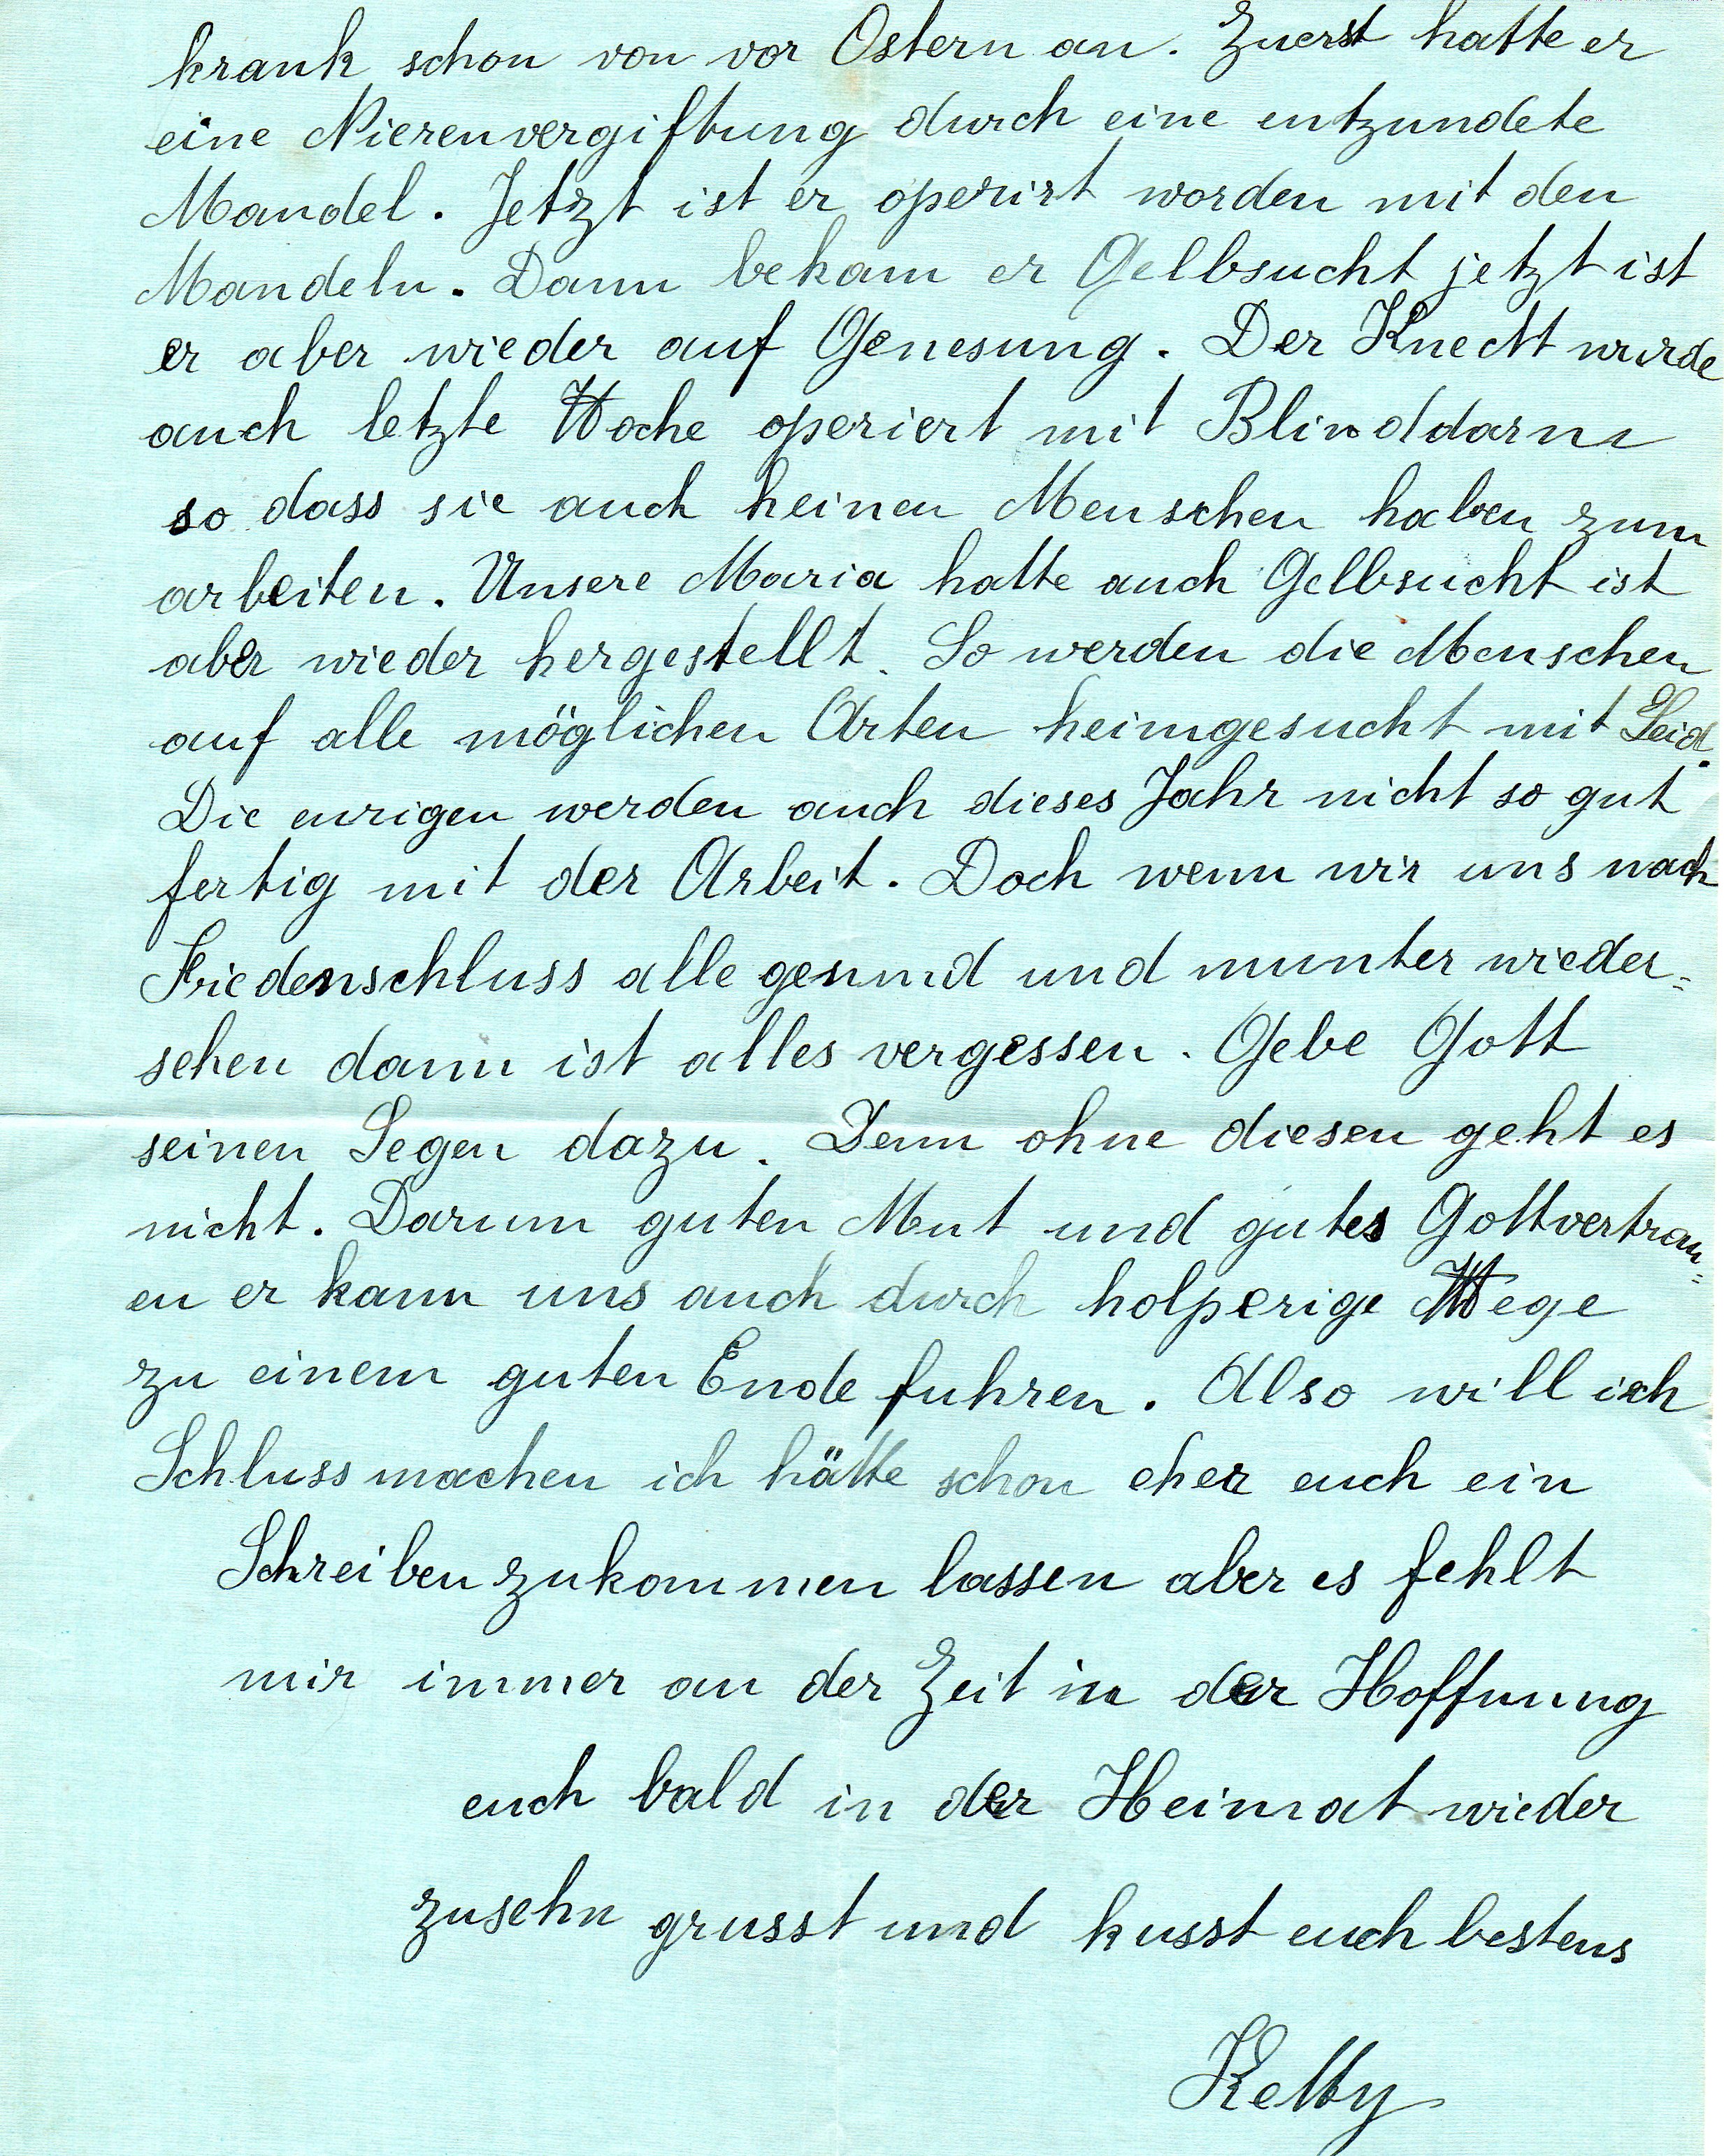 krank schon von vor Ostern an. Zuerst hatte er
eine Nierenvergiftung durch eine entzundete
Mandel. Jetzt ist er operirt worden mit den
Mandeln. Dann bekam er Gelbsucht jetzt ist
er aber wieder auf Genesung. Der Knecht wurde
auch letzte Woche operiert mit Blinddarm
so dass sie auch keinen Menschen haben zum
arbeiten. Unsere Maria hatte auch Gelbsucht ist
aber wieder hergestellt. So werden die Menschen
auf alle möglichen Arten heimgesucht mit Leid.
Die eurigen werden auch dieses Jahr nicht so gut
fertig mit der Arbeit. Doch wenn wir uns nach
Friedenschluss alle gesund und munter wieder=
sehen dann ist alles vergessen. Gebe Gott
seinen Segen dazu. Denn ohne diesen geht es
nicht. Darum guten Mut und gutes Gottvertrau=
en er kann uns auch durch holperige Wege
zu einem guten Ende fuhren. Also will ich
Schluss machen ich hätte schon eher euch ein
Schreiben zukommen lassen aber es fehlt
mir immer an der Zeit in der Hoffnung
euch bald in der Heimat wieder
zusehn grusst und kusst euch bestens
Ketty